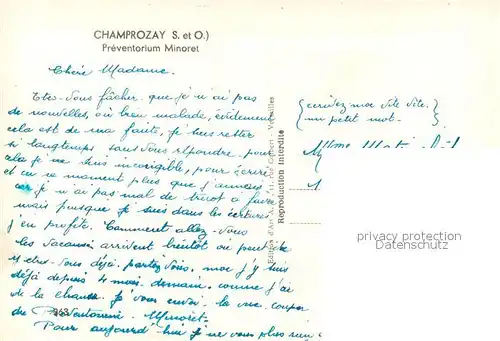 CHAMPROZAY S. et O.)
Préventorium Minoret
Chère Madame.
Etes-Vous fâcher, que je n'ai pas
de nouvelles, où bien malade, évidement
cela est de ma faute, je suis rester
si longtemps sans Vous répondre, pour
cela je ne suis incorigible, pour écrire
et en ce moment plus que jamais
car je n'ai pas mal de tricot a faire
mais puisque je suis dans les écritures
j'en profite. Comment allez-Vous
les Vacances arrivent bientôt ou peut
y êtes-Vous déjà. partez Vous, moi j'y suis
déjà depuis 4 mois demain, comme j'ai
de la chance. Je Vous envoi la vue
du Préventorium Minoret.
263
Pour aujourd'hui je ne vous plus rien
Edition d'Art
Versailles
Reproduction interdite
écrivez moi vite vite.
un petit mot.
Mme
privacy protection
Datenschutz